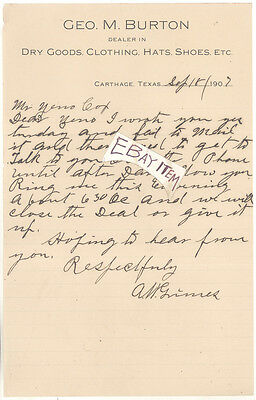 GEO. M. BURTON
DEALER IN
DRY GOODS, CLOTHING, HATS, SHOES, ETC.
CARTHAGE, TEXAS, Sep 18 1907
Mr Yeno Cox
Dear Yeno I wrote you yes
turday and fad to Mail
it and then to get to
Talk to you Phone
until after Dar now you
Ring me this Evening
About 6 30 Oc and we will
close the Deal or give it
up.
Hoping to hear from
you.
Respectfuly
A.W. Grimes
EBAY ITEM